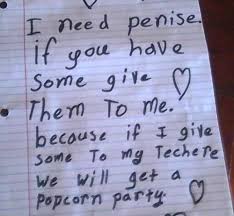 I need penise.
if you have
some give
Them To me.
because if I give
some To my Techere
We will get a
Popcorn party.